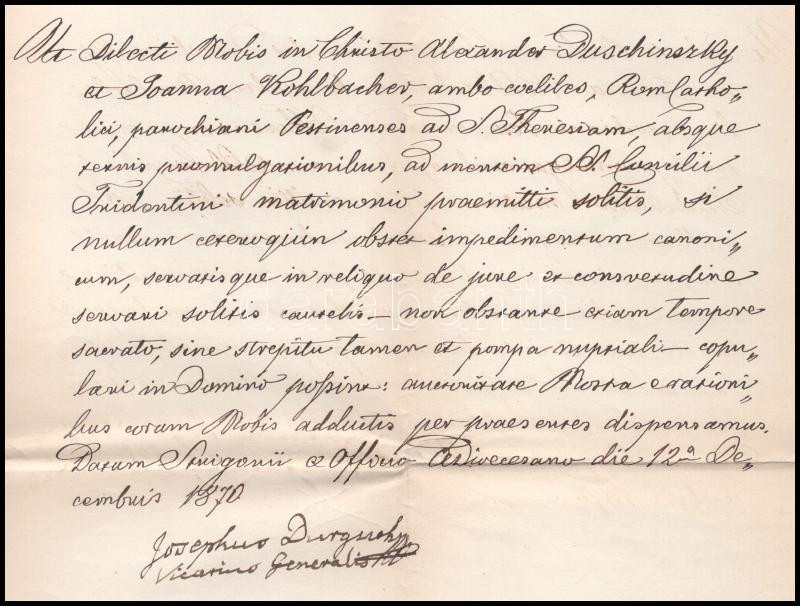 Ut Dilecti Nobis in Christo Alexander Duschinszky
et Joanna Kohlbacher, ambo coelibes, Rom Catho„
lici, parochiani Pestinenses ad S. Theresiam, absque
ternis promulgationibus, ad mentem S. Concilii
Tridentini matrimonio praemitti solitis, si
nullum ceteroquin obstet impedimentum canoni„
cum, servatisque in reliquo de jure et consvetudine
servari solitis cautelis – non obstante etiam tempore
sacrato, sine strepitu tamen et pompa nuptiali – copu„
lari in Domino possint: auctoritate Nostra e rationi„
bus coram Nobis adductis per praesentes dispensamus.
Datum Strigonii e Officio ADioecesano die 12a De„
cembris 1870
Josephus
Vicarius Generalis